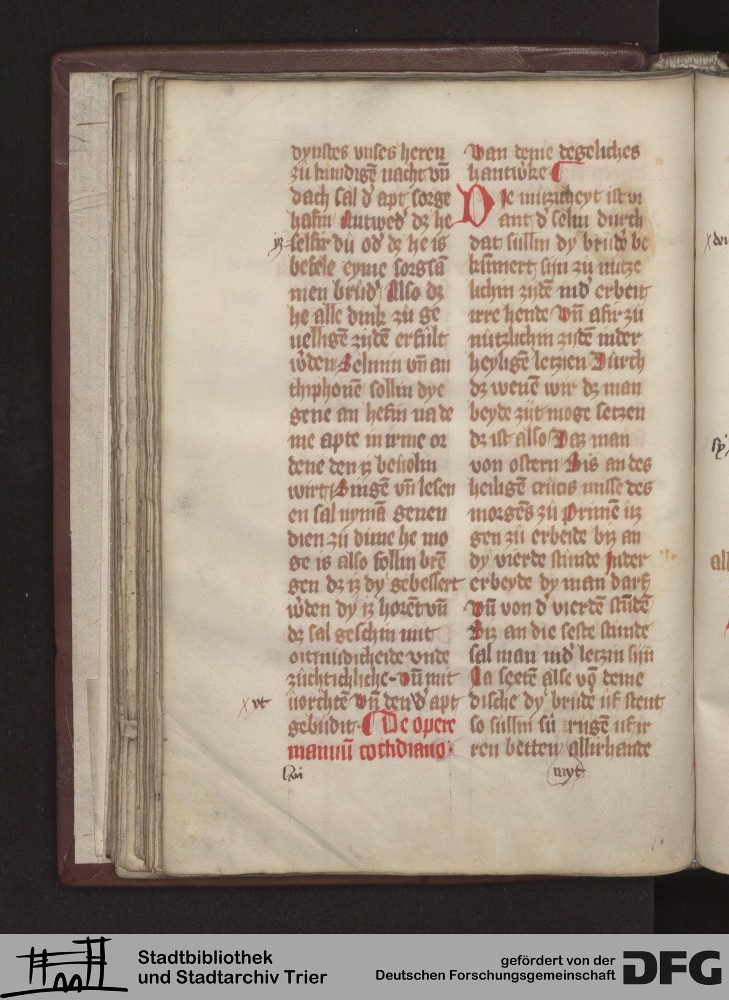 dynstes vnses heren
zu kundigē nacht vn̄
dach sal d' apt sorge
hafin Antwed' dz he
iz selfir du od' dz he is
befele eyme sorgsā
men brud' Also dz
he alle dink zu ge
uelligē zydē erfult
w'den Selmin vn̄ an
thiphonē sollin dye
gene an hefin na de
me apte in irme or
dene den iz beuolin
wirt Singē vn̄ lesen
en sal nymā geneu
dien zu diwe he mo
ge is also sollin brē
gen dz iz dy gebessert
w'den dy iz horēt vn̄
dz sal geschin mit
oitmudicheide vnde
zuchtichliche vn̄ mit
xvt uorchtē vn̄ den d' apt
gebudit De opere
manuū cothdiano
lxvi
Van deme degeliches
hantw'ke
Die muzicheyt ist vi
ant d' selin durch
dat sullin dy brud'e be
kūmert sijn zu nutze
lichin zijdē mid' erbeit
irre hende Vn̄ afir zu
nutzlichin zijdē inder
heyligē letzien Durch
dz wenē wir dz man
beyde zijt moge setzen
dz ist also Daz man
von ostern Bis an des
heiligē crucis misse des
morgēs zu Primē uz
gen zu erbeide biz an
dy vierde stunde Inder
erbeyde dy man darf
Vn̄ von d' vierdē stūdē
Biz an die seste stunde
sal man mid' letzin sijn
Na sextē alse vō deme
dische dy brud'e uf stent
so sullin si rugen uf ir
ren betten allirhande
myt
Stadtbibliothek
und Stadtarchiv Trier
gefördert von der
Deutschen Forschungsgemeinschaft
DFG